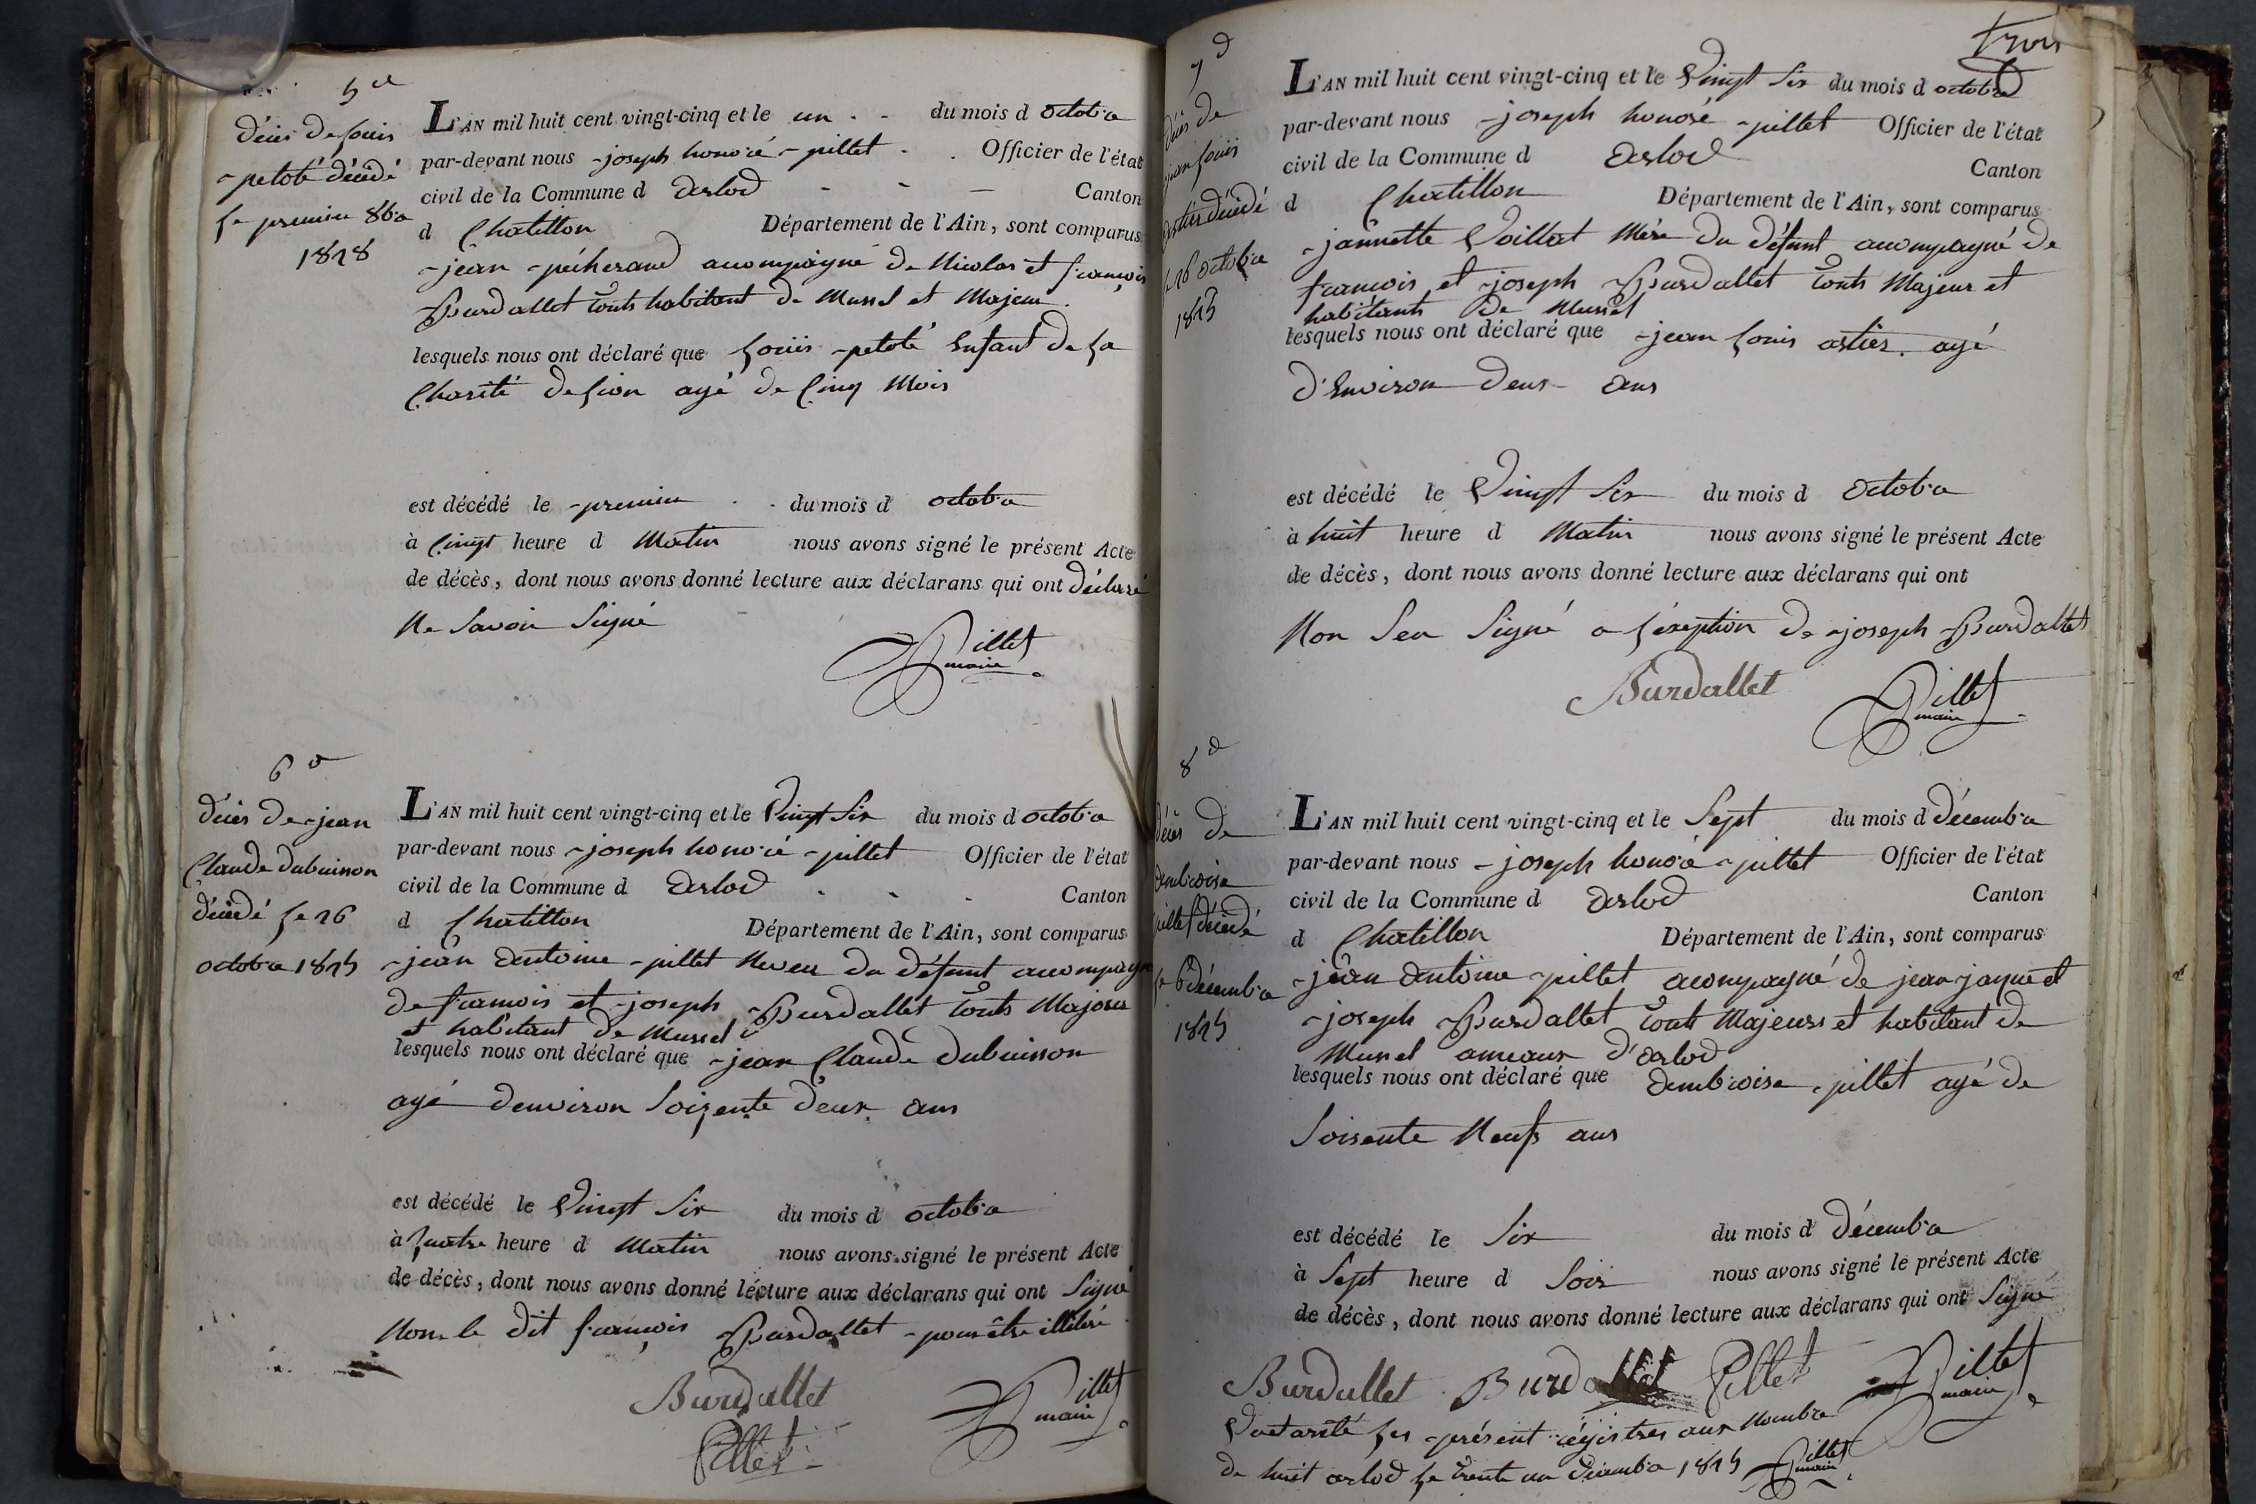 5 d
décès de louis
petoté décédé
le premier 8bre
1828
L'AN mil huit cent vingt-cinq et le un du mois d octobre
par-devant nous joseph honoré pillet Officier de l'état
civil de la Commune d arlod Canton
d Chatillon Département de l'Ain, sont comparus
jean pécherand acompagné de Nicolas et francois
Burdallet touts habitant de Mussel et Majeur
lesquels nous ont déclaré que louis petoté Enfant de la
Charité de lion agé de Cinq Mois
est décédé le premier du mois d octobre
à Cinqt heure d Matin nous avons signé le présent Acte
de décès, dont nous avons donné lecture aux déclarans qui ont déclaré
Ne Savoir Signé
Pillet
maire
6 d
décès de jean
Claude dubuisson
décédé le 26
octobre 1825
L'AN mil huit cent vingt-cinq et le Vingt Six du mois d octobre
par-devant nous joseph honoré pillet Officier de l'état
civil de la Commune d arlod Canton
d Chatillon Département de l'Ain, sont comparus
jean antoine pillet Neveu du défunt acompagné
de francois et joseph Burdallet touts Majeur
et habitant de Mussel
lesquels nous ont déclaré que jean Claude dubuisson
agé denviron Soizente deux ans
est décédé le Vingt Six du mois d octobre
à quatre heure d Matin nous avons signé le présent Acte
de décès, dont nous avons donné lecture aux déclarans qui ont Signé
Non le dit francois Burdallet pour être illitéré
Burdallet
Pillet
Pillet
maire
trois
7 d
décès de
jean louis
astier décédé
le 26 octobre
1825
L'AN mil huit cent vingt-cinq et le Vingt Six du mois d octobre
par-devant nous joseph honoré pillet Officier de l'état
civil de la Commune d arlod Canton
d Chatillon Département de l'Ain, sont comparus
jannette Voillat Mère du défunt acompagné de
francois et joseph Burdallet touts Majeur et
habitants de Mussel
lesquels nous ont déclaré que jean louis astier agé
d'Environ deux ans
est décédé le Vingt Six du mois d octobre
à huit heure d Matin nous avons signé le présent Acte
de décès, dont nous avons donné lecture aux déclarans qui ont
Non Seu Signé a lexeption de joseph Burdallet
Burdallet
Pillet
maire
8 d
décès de
ambroise
pillet décédé
le 6 décembre
1825
L'AN mil huit cent vingt-cinq et le Sept du mois d décembre
par-devant nous joseph honoré pillet Officier de l'état
civil de la Commune d arlod Canton
d Chatillon Département de l'Ain, sont comparus
jean antoine pillet acompagné de jean jaque et
joseph Burdallet touts Majeurs et habitant de
Mussel ameaux d'arlod
lesquels nous ont déclaré que ambroise pillet agé de
Soisente Neufs ans
est décédé le Six du mois d décembre
à Sept heure d Soir nous avons signé le présent Acte
de décès, dont nous avons donné lecture aux déclarans qui ont Signé
Burdallet Burdallet Pillet Pillet
maire
arrêté les présent régistres aux Nombre
de huit arlod le trente un décembre 1825 Pillet
maire